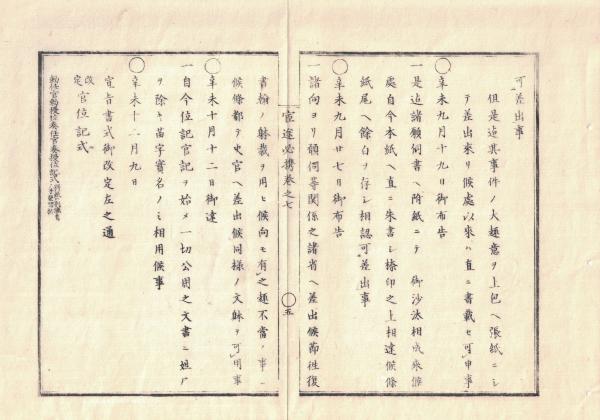 可差出事
但是迄其事件ノ大趣意ヲ上包ヘ張紙ニシ
テ差出来リ候處以来ハ直ニ書載セ可申事
○辛未九月十九日御布告
一是迄諸願伺書ヘ附紙ニテ 御沙汰相成来候
處自今本紙ヘ直ニ朱書シ捺印之上相達候條
紙尾ヘ餘白ヲ存シ相認可差出事
○辛未九月廿七日御布告
一諸向ヨリ願伺等關係之諸省ヘ差出候節往復
宣達必携巻之七
○五
書翰ノ躰裁ヲ用ヒ候向モ有之趣不當ノ事ニ
候條都テ史官ヘ差出候同様ノ文躰ヲ可用事
○辛未十月十二日御達
一自今位記官記ヲ始メ一切公用之文書ニ姓尸
ヲ除キ苗字實名ノミ相用候事
○辛未十二月九日
宣旨書式御改定左之通
改定官位記式
勅任官勅授位奏任官奏授位記式